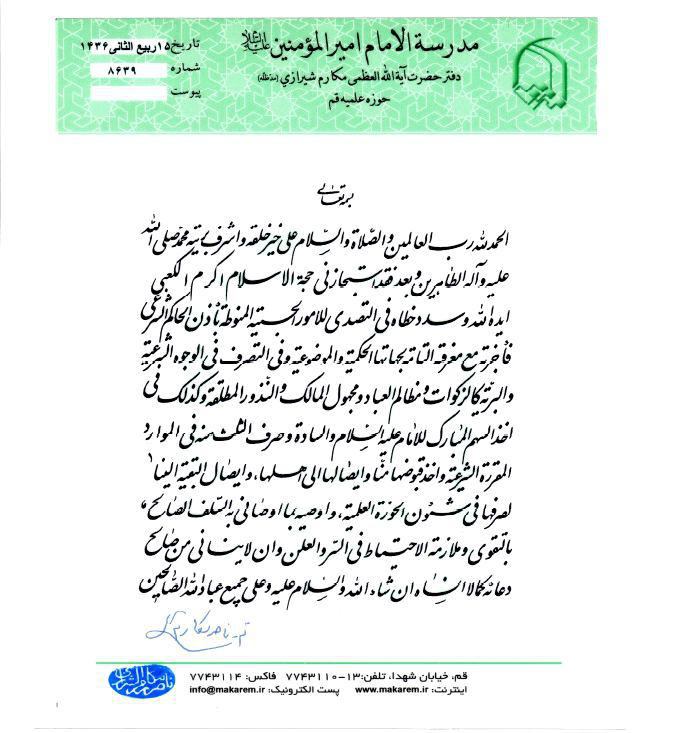 مدرسة الامام اميرالمؤمنين
دفتر حضرت آية الله العظمى مكارم شيرازي (مدظله)
حوزه علميه قم
تاريخ ۱۵ ربیع الثانی ۱۴۳۶
شماره ۸۶۳۹
پیوست
بسمه تعالی
الحمد لله رب العالمین و الصلاة والسلام علی خیر خلقه و اشرف بریته محمد صلی الله
علیه و آله الطاهرین و بعد فقد استجازنی حجة الاسلام اکرم الکعبی
ایده الله و سدد خطاه فی التصدی للامور الحسبیة المنوطة بأذن الحاکم الشرعی
فأجزته مع معرفته التامة بجهاتها الحکمیة والموضوعیة و فی التصرف فی الوجوه الشرعیة
والبریّة کالزکوات و مظالم العباد و مجهول المالک والنذور المطلقة و کذلک فی
اخذ السهم المبارک للامام علیه السلام والسادة و صرف الثلث منه فی الموارد
المقررة الشرعیة و اخذ قبوضها منّا و ایصالها الی اهلها، و ایصال البقیة الینا
لصرفها فی شئون الحوزة العلمیة، و اوصیه بما اوصانی به السلف الصالح،
بالتقوی و ملازمة الاحتیاط فی السر والعلن و ان لاینسانی من صالح
دعائه کمالا انساه ان شاء الله والسلام علیه و علی جمیع عباد الله الصالحین
قم - ناصر مکارم
قم، خیابان شهدا، تلفن: ۱۳-۷۷۴۳۱۱۰ فاکس: ۷۷۴۳۱۱۴
اینترنت: www.makarem.ir پست الکترونیک: info@makarem.ir
ناصر مکارم الشیرازی